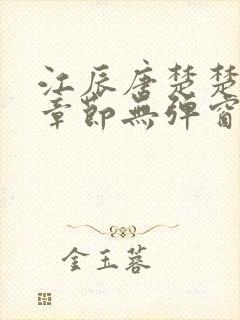 江辰唐楚楚
章節無彈窗
金玉蓉